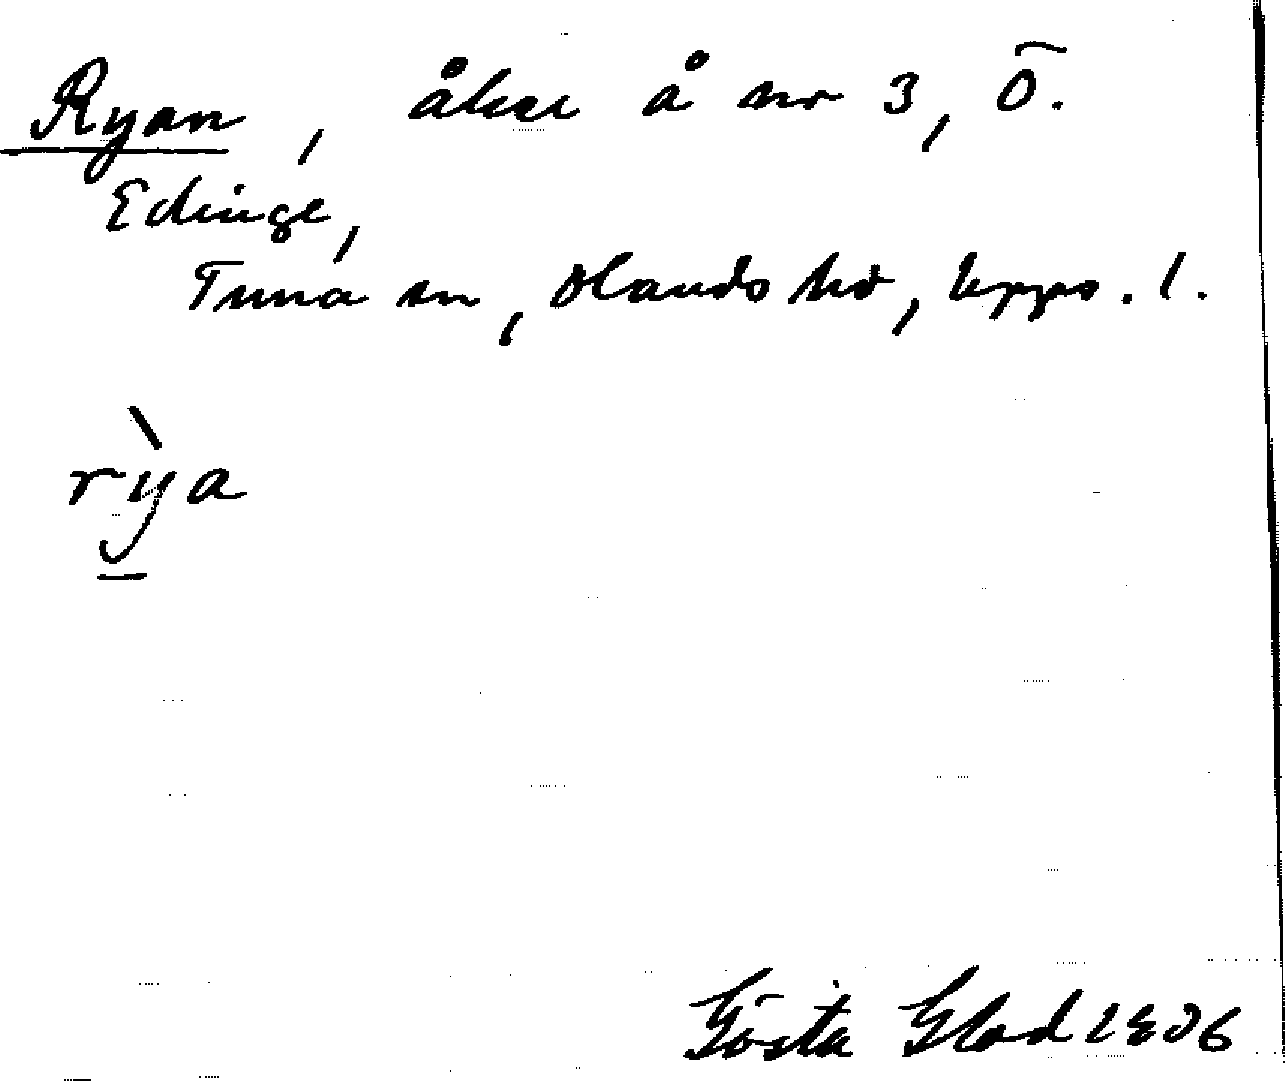 Ryan, åker å nr 3, Ö.
Edinge,
Tuna sn, Olands hd, Upps. l.
rỳa
Gösta Glad 1806